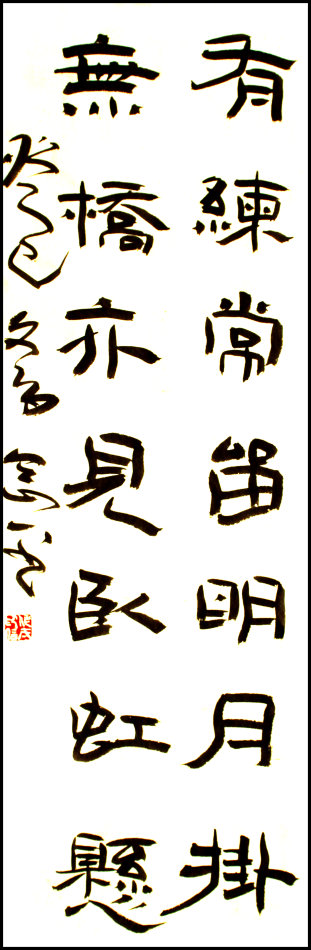 有練常留明月掛
無橋亦見臥虹懸
癸巳